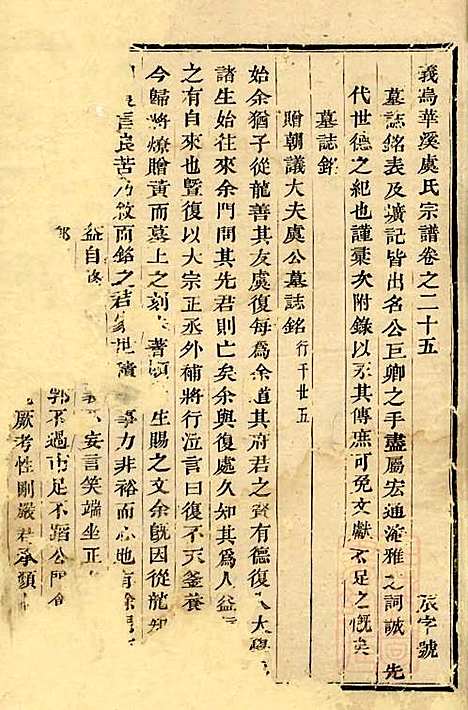 義烏華溪虞氏宗譜卷之二十五 辰字號
墓誌銘表及壙記皆出名公巨卿之手盡屬宏通淹雅之詞誠先
代世德之紀也謹彙次附錄以永其傳庶可免文獻不足之慨矣
墓誌銘
贈朝議大夫虞公墓誌銘 行千廿五
始余猶子從龍善其友虞復每為余道其府君之賢有德復入太學
諸生始往來余門問其先君則亡矣余與復處久知其為人益
之有自來也暨復以大宗正丞外補將行泣言曰復不天釜養
今歸將燎贈黃而墓上之刻 著頃 生賜之文余旣因從龍知
言良苦乃敘而銘之君 世濟 事力非裕而心地有餘
益自 妄言笑端坐正
郭不過市足不蹈公門
厥考性剛嚴君承顏